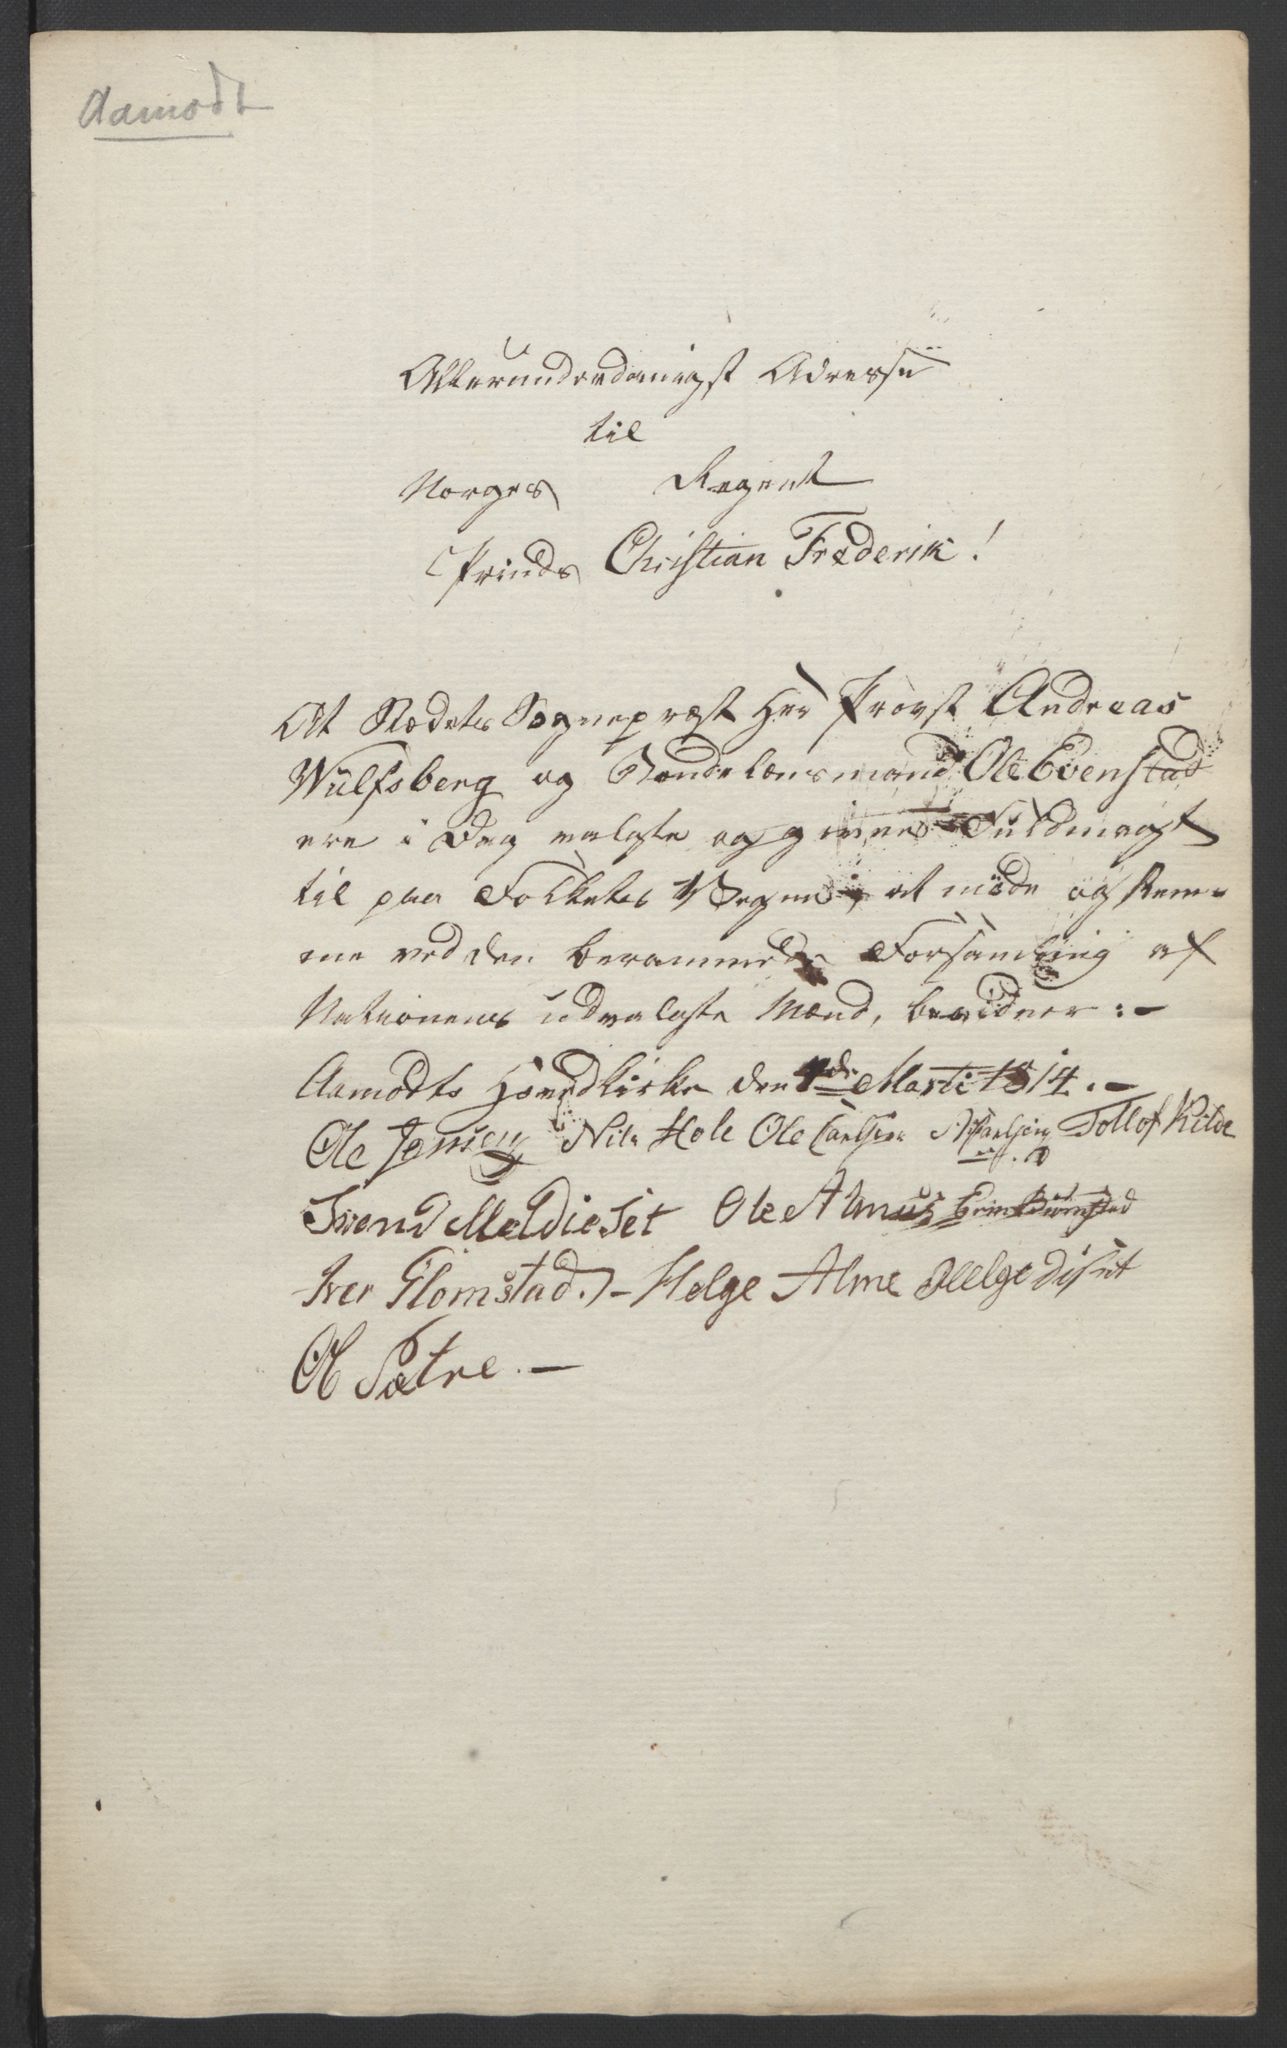 Aamodt
Allerunderdanigst Adresse
til
Norges Regent
Prinds Christian Frederik!
At Stædets Sognepræst Her Provst Andreas
Wulfsberg og Bondelensmand Ole Evenstad
ere i Dag valgte og givne Fuldmagt
til paa Folkets Vegne, at møde og stem-
me ved den berammede Forsamling af
Nationens udvalgte Mænd, bevidner:-
Aamodts Hovedkirke den Marti 1814.-
Ole Nils Hole Ole Carlsen Tollof Kilde
Svend Meldieset Ole Almus
Iver Glomstad.- Helge Alme Helge Diset
Ol Sætre.-